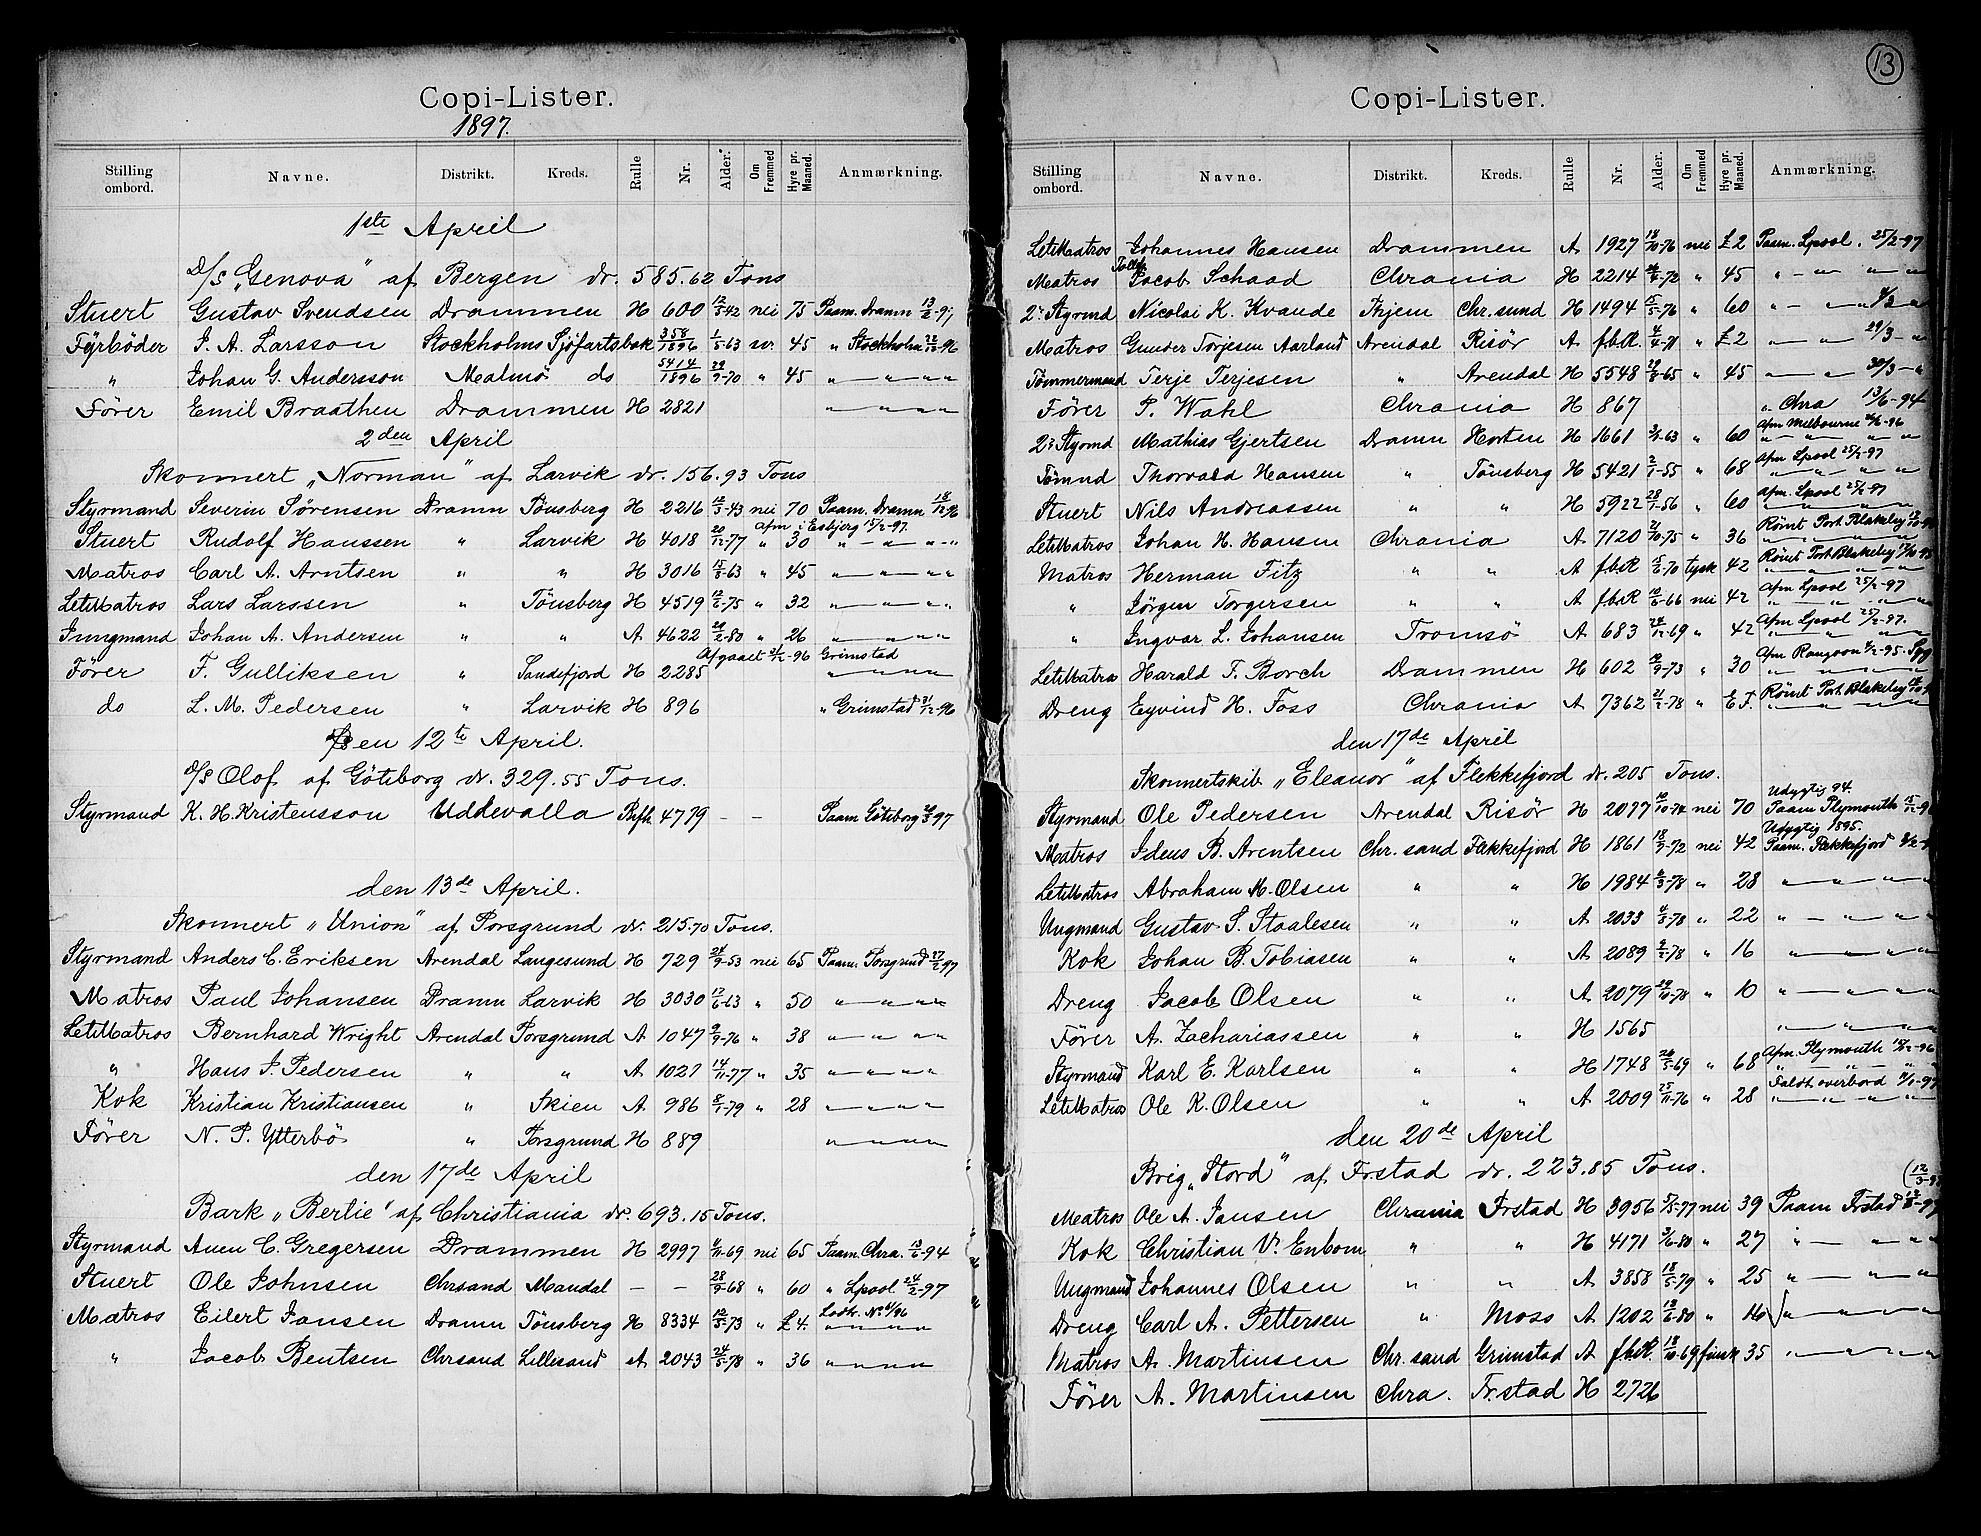 Copi-Lister.
1897.
Stilling ombord. Navne. Distrikt. Kreds. Rulle Nr. Alder. Om Fremmed Hyre pr. Maaned. Anmærkning.
1ste April
D/S „Genova" af Bergen dr. 585.62 Tons
Stuert Gustav Svendsen Drammen H 600 12/5-42 nei 75 Paam. Dramn 13/2-97
Fÿrböder J. A. Larsson Stockholms Sjöfartsbok 358/1896 1/5-63 sv. 45 „ Stockholm 22/12-96
„ Johan G. Andersson Malmö do 5414/1896 29/9-70 „ 45 „ — „ — „ „
Förer Emil Braathen Drammen H 2821 „ — „ — „ „
2den April
Skonnert „Norman" af Larvik dr. 156.93 Tons
Styrmand Severin Sörensen Dramn Tönsberg H 2216 12/3-43 nei 70 Paam. Dramn 18/12-96
afm i Esbjerg 15/2-97.
Stuert Rudolf Hanssen „ Larvik H 4018 20/12-77 „ 30 „ — „ — „ „
Matros Carl A. Arntsen „ „ H 3016 15/8-63 „ 45 „ — „ — „ „
LetMatros Lars Larssen „ Tönsberg H 4519 12/2-75 „ 32 „ — „ — „ „
Jungmand Johan A. Andersen „ „ A 4622 20/2-80 „ 26 „ — „ — „ „
Afgaaet 21/12-96 Grimstad
Förer F. Gulliksen „ Sandefjord H 2285 „ — „ — „ „
do L. M. Pedersen „ Larvik H 896 „ Grimstad 21/12-96
Den 12te April.
D/S Olof af Göteborg dr. 329.55 Tons.
Styrmand K. H. Kristensson Uddevalla 4779 – – Paam Göteborg 97
den 13de April.
Skonnert „Union" af Porsgrund dr. 215.70 Tons.
Styrmand Anders C. Eriksen Arendal Langesund H 729 24/9-53 nei 65 Paam. Porsgrund 17/2-97
Matros Paul Johansen Dramn Larvik H 3030 17/6-63 „ 50 „ — „ — „ „
LetMatros Bernhard Wright Arendal Porsgrund A 1047 9/9-76 „ 38 „ — „ — „ „
„ Hans J. Pedersen „ „ A 1027 14/11-77 „ 35 „ — „ — „ „
Kok Kristian Kristiansen „ Skien A 986 8/1-79 „ 28 „ — „ — „ „
Förer N. P. Ytterbö „ Porsgrund H 889 „ — „ — „ „
den 17de April
Bark „Bertie" af Christiania dr. 693.15 Tons.
Styrmand Aven C. Gregersen Drammen H 2997 6/11-69 nei 65 Paam. Chra. 13/6-94
Stuert Ole Johnsen Chrsand Mandal – – 28/9-68 „ 60 „ Lpool 24/2-97
Matros Eilert Jansen Dramn Tönsberg H 8334 12/5-73 „ £4. „ — „ — „ „
„ Jacob Bentsen Chrsand Lillesand A 2043 24/5-78 „ 36 „ — „ — „ „
13
Copi-Lister.
Stilling ombord. Navne. Distrikt. Kreds. Rulle Nr. Alder. Om Fremmed Hyre pr. Maaned. Anmærkning.
LetMatros Johannes Hansen Drammen A 1927 18/10-76 nei £2 Paam. Lpool. 25/2-97
Matros Jacob Schaad Chrania H 2214 24/4-72 „ 45 „ — „ „ „
2. Styrmd Nicolai K. Kvande Thjem Chr.sund H 1494 15/5-76 „ 60 „ — „ 4/3 „
Matros Gunder Torjesen Aarland Arendal Risör A fbR. 4/4-71 „ £2 „ — „ 29/3 – „
Tömmermand Terje Terjesen „ Arendal H 5548 29/8-65 „ 45 „ — „ 30/3 – „
Förer P. Wahl Chrania H 867 „ Chra 13/6-94
afm Melbourne 96
2. Styrmd Mathias Gjertsen Dramn Horten H 1661 63 „ 60 „ — „ — „ „
afm Lpool 25/2-97
Tömmd Thorvald Hansen „ Tönsberg H 5421 2/1-55 „ 68 „ — „ — „ „
afm. Lpool 25/2-97
Stuert Nils Andreassen „ „ H 5922 28/1-56 „ 60 „ — „ — „ „
Römt Port Blakeley
LetMatros Johan H. Hansen Chrania A 7120 21/10-75 „ 36 „ — „ — „ „
Römt Port Blakeley
Matros Herman Fitz „ „ A fbR 15/6-70 tysk 42 „ — „ — „ „
afm Lpool 25/2-97
„ Jörgen Torgersen „ „ A fbR 10/6-66 nei 42 „ — „ — „ „
Afm Lpool 25/2-97.
„ Ingvar L. Johansen Tromsö A 683 24/12-69 „ 42 „ — „ — „ „
Afm Rangoon 95.
LetMatros Harald F. Borch Drammen H 602 10/9-73 „ 30 „ — „ — „ „
Römt Port Blakeley
Dreng Eyvind H. Foss Chrania A 7362 21/2-78 „ £1. „ — „ — „ „
den 17de April
Skonnertskib. „Eleanor" af Flekkefjord dr. 205 Tons.
Udygtig 94.
Styrmand Ole Pedersen Arendal Risör H 2077 10/10-74 nei 70 Paam Plymouth 15/12-96
Udygtig 1895.
Matros Idens B. Arentsen Chr.sand Flekkefjord H 1861 18/9-72 nei 42 Paam. Flekkefjord
LetMatros Abraham M. Olsen „ „ H 1984 6/3-78 „ 28 „ — „ — „ „
Ungmand Gustav S. Staalesen „ „ A 2033 4/8-78 „ 22 „ — „ — „ „
Kok Johan B. Tobiasen „ „ A 2089 9/2-78 „ 16 „ — „ — „ „
Dreng Jacob Olsen „ „ A 2079 29/10-78 „ 10 „ — „ — „ „
Förer A. Zachariassen „ „ H 1565 „ — „ — „ „
Afm. Plymouth 15/12-96
Styrmand Karl E. Karlsen „ „ H 1748 26/5-69 „ 68 „ — „ — „ „
Faldt overbord 97
LetMatros Ole K. Olsen „ „ A 2009 25/11-76 „ 28 „ — „ — „ „
den 20de April
Brig „Stord" af Frstad dr. 223.85 Tons.
Matros Ole A. Jansen Chrania Frstad H 3956 5/5-77 nei 39 Paam Frstad 12/3-97
Kok Christian V. Enbom „ „ H 4171 7/6-80 „ 27 „ — „ — „ „
Ungmand Johannes Olsen „ „ A 3858 18/5-79 „ 25 „ — „ — „ „
Dreng Carl A. Pettersen „ Moss A 1202 13/6-80 „ 16 „ — „ — „ „
Matros A. Martinsen Chr.sand Grimstad A fbR. 18/10-69 finsk 35 „ — „ — „ „
Förer A. Martinsen Chra. Frstad H 2726